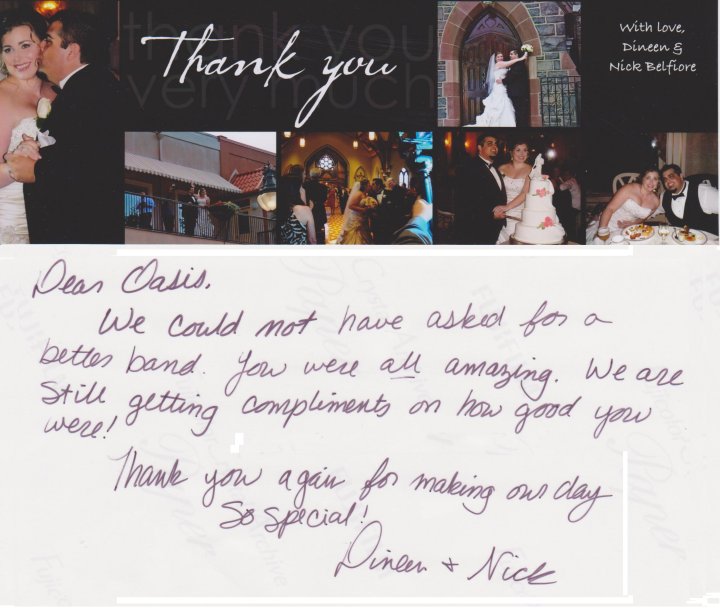 thank you
very much
Thank you
With love,
Dineen &
Nick Belfiore
Dear Oasis,
We could not have asked for a
better band. You were all amazing. We are
still getting compliments on how good you
were!
Thank you again for making our day
So special!
Dineen + Nick